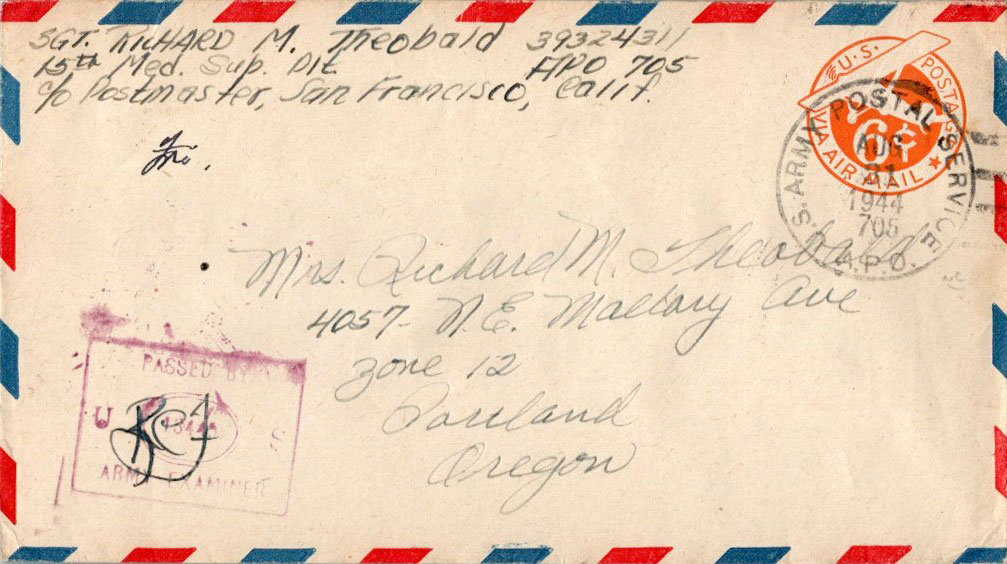 SGT. RICHARD M. Theobald 39324311
15th Med. Sup. Dit. APO 705
c/o Postmaster, San Francisco, Calif.
U.S. POSTAGE
6¢
VIA AIR MAIL
U.S. ARMY POSTAL SERVICE
AUG
31
1944
705
A.P.O.
Mrs. Richard M. Theobald
4057- N.E. Mallory Ave
Zone 12
Portland
Oregon
PASSED BY
U S
ARMY EXAMINER